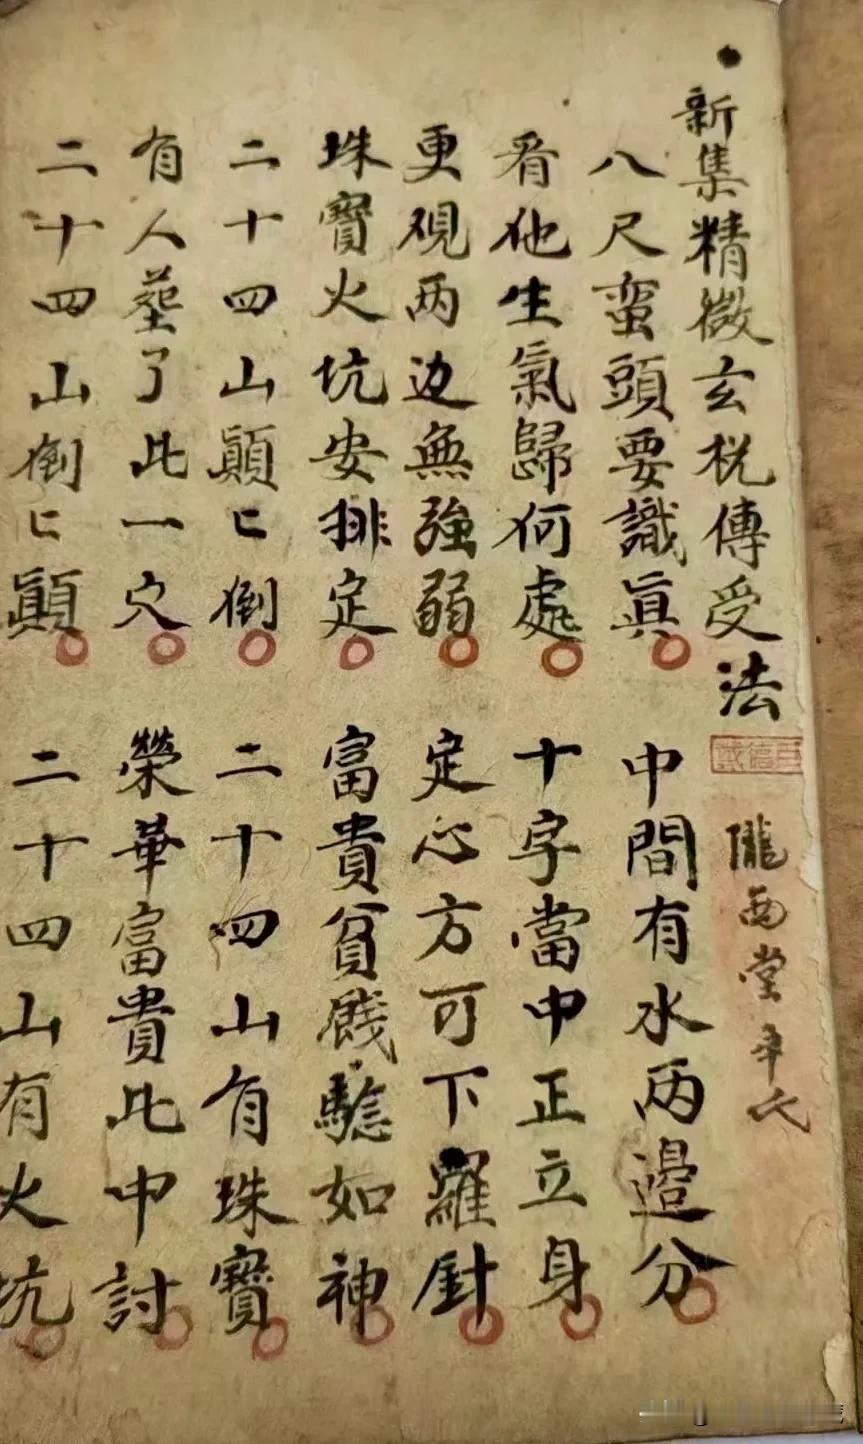 新集精微玄机傳受法
隴西堂辛氏
八尺蛮頭要識眞 中間有水两邉分
看他生氣歸何處 十字當中正立身
更观两边無強弱 定心方可下羅針
珠寶火坑安排定 富貴貧賤驗如神
二十四山顛匕倒 二十四山有珠寶
有人葬了此一穴 榮華富貴此中討
二十四山倒匕顛 二十四山有火坑